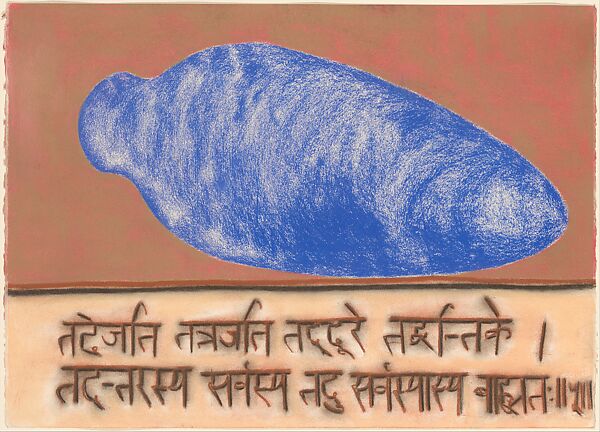 तदेजति तन्नैजति तद्दूरे तद्वन्तिके ।
तदन्तरस्य सर्वस्य तदु सर्वस्यास्य बाह्यतः॥५॥